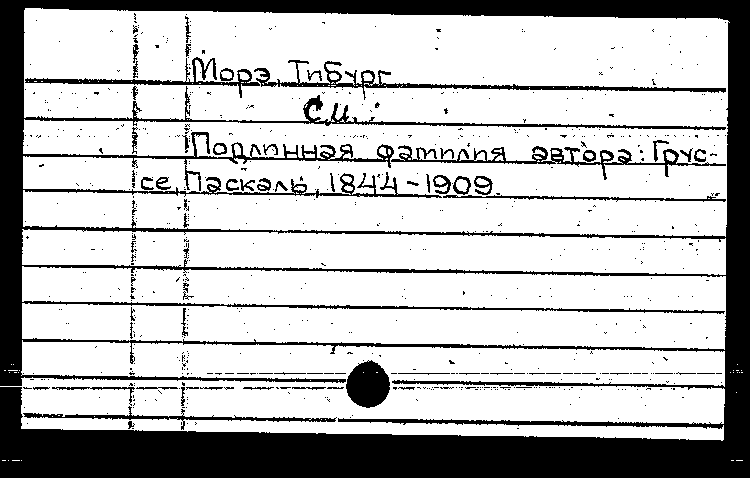 Морэ, Тибург
См.:
Подлинная фамилия автора: Грус-
се, Паскаль, 1844-1909.